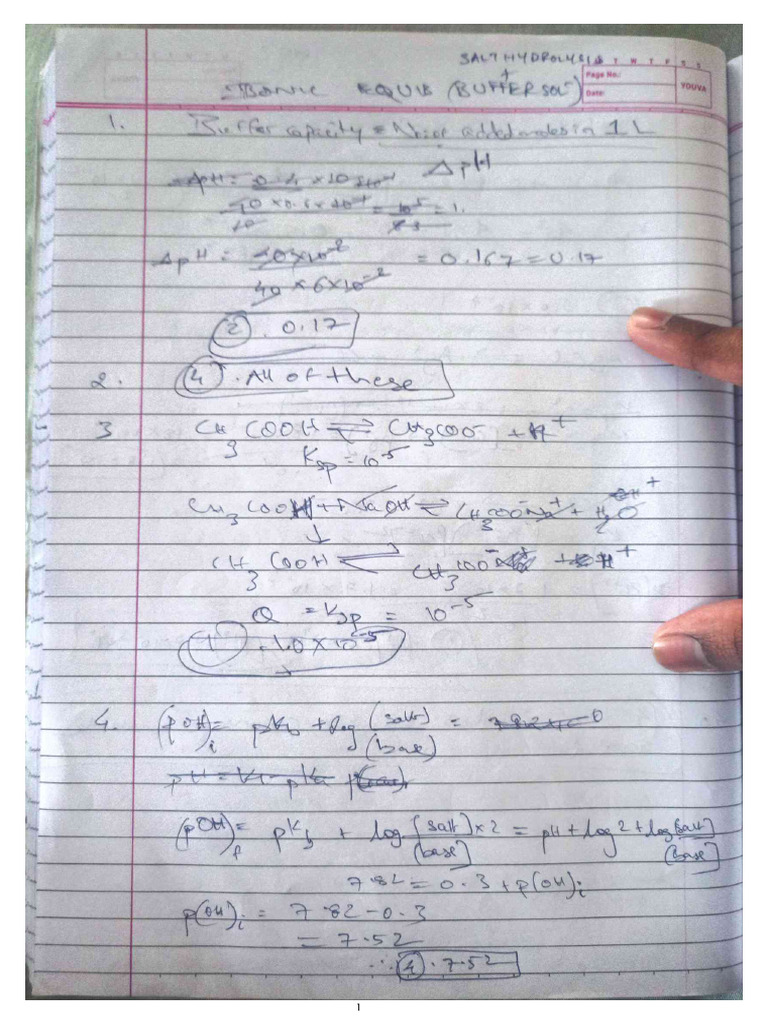 SALT HYDROLYSIS
+
Ionic EQUIB (BUFFER SOL)
T W T F S S
Page No.:
Date:
YOUVA
1. Buffer capacity = No. of added moles in 1 L
ΔpH
ΔpH = 0.4 × 10
ΔpH = 40×10⁻² / 40×6×10⁻² = 0.167 = 0.17
② . 0.17
2. ④ . All of these
3 CH₃COOH ⇌ CH₃COO⁻ + H⁺
Ksp = 10⁻⁵
CH₃COOH + NaOH ⇌ CH₃COO⁻Na⁺ + H₂O
↓
CH₃COOH ⇌ CH₃COO⁻ + H⁺
Q = Ksp = 10⁻⁵
① . 1.0 × 10⁻⁵
4. (pOH)i = pKb + log [salt] / [base] =
(pOH)f = pKb + log [salt]×2 / [base] = pH + log 2 + log [salt] / [base]
7.82 = 0.3 + p(OH)i
p(OH)i = 7.82 - 0.3
= 7.52
∴ ④ . 7.52
1